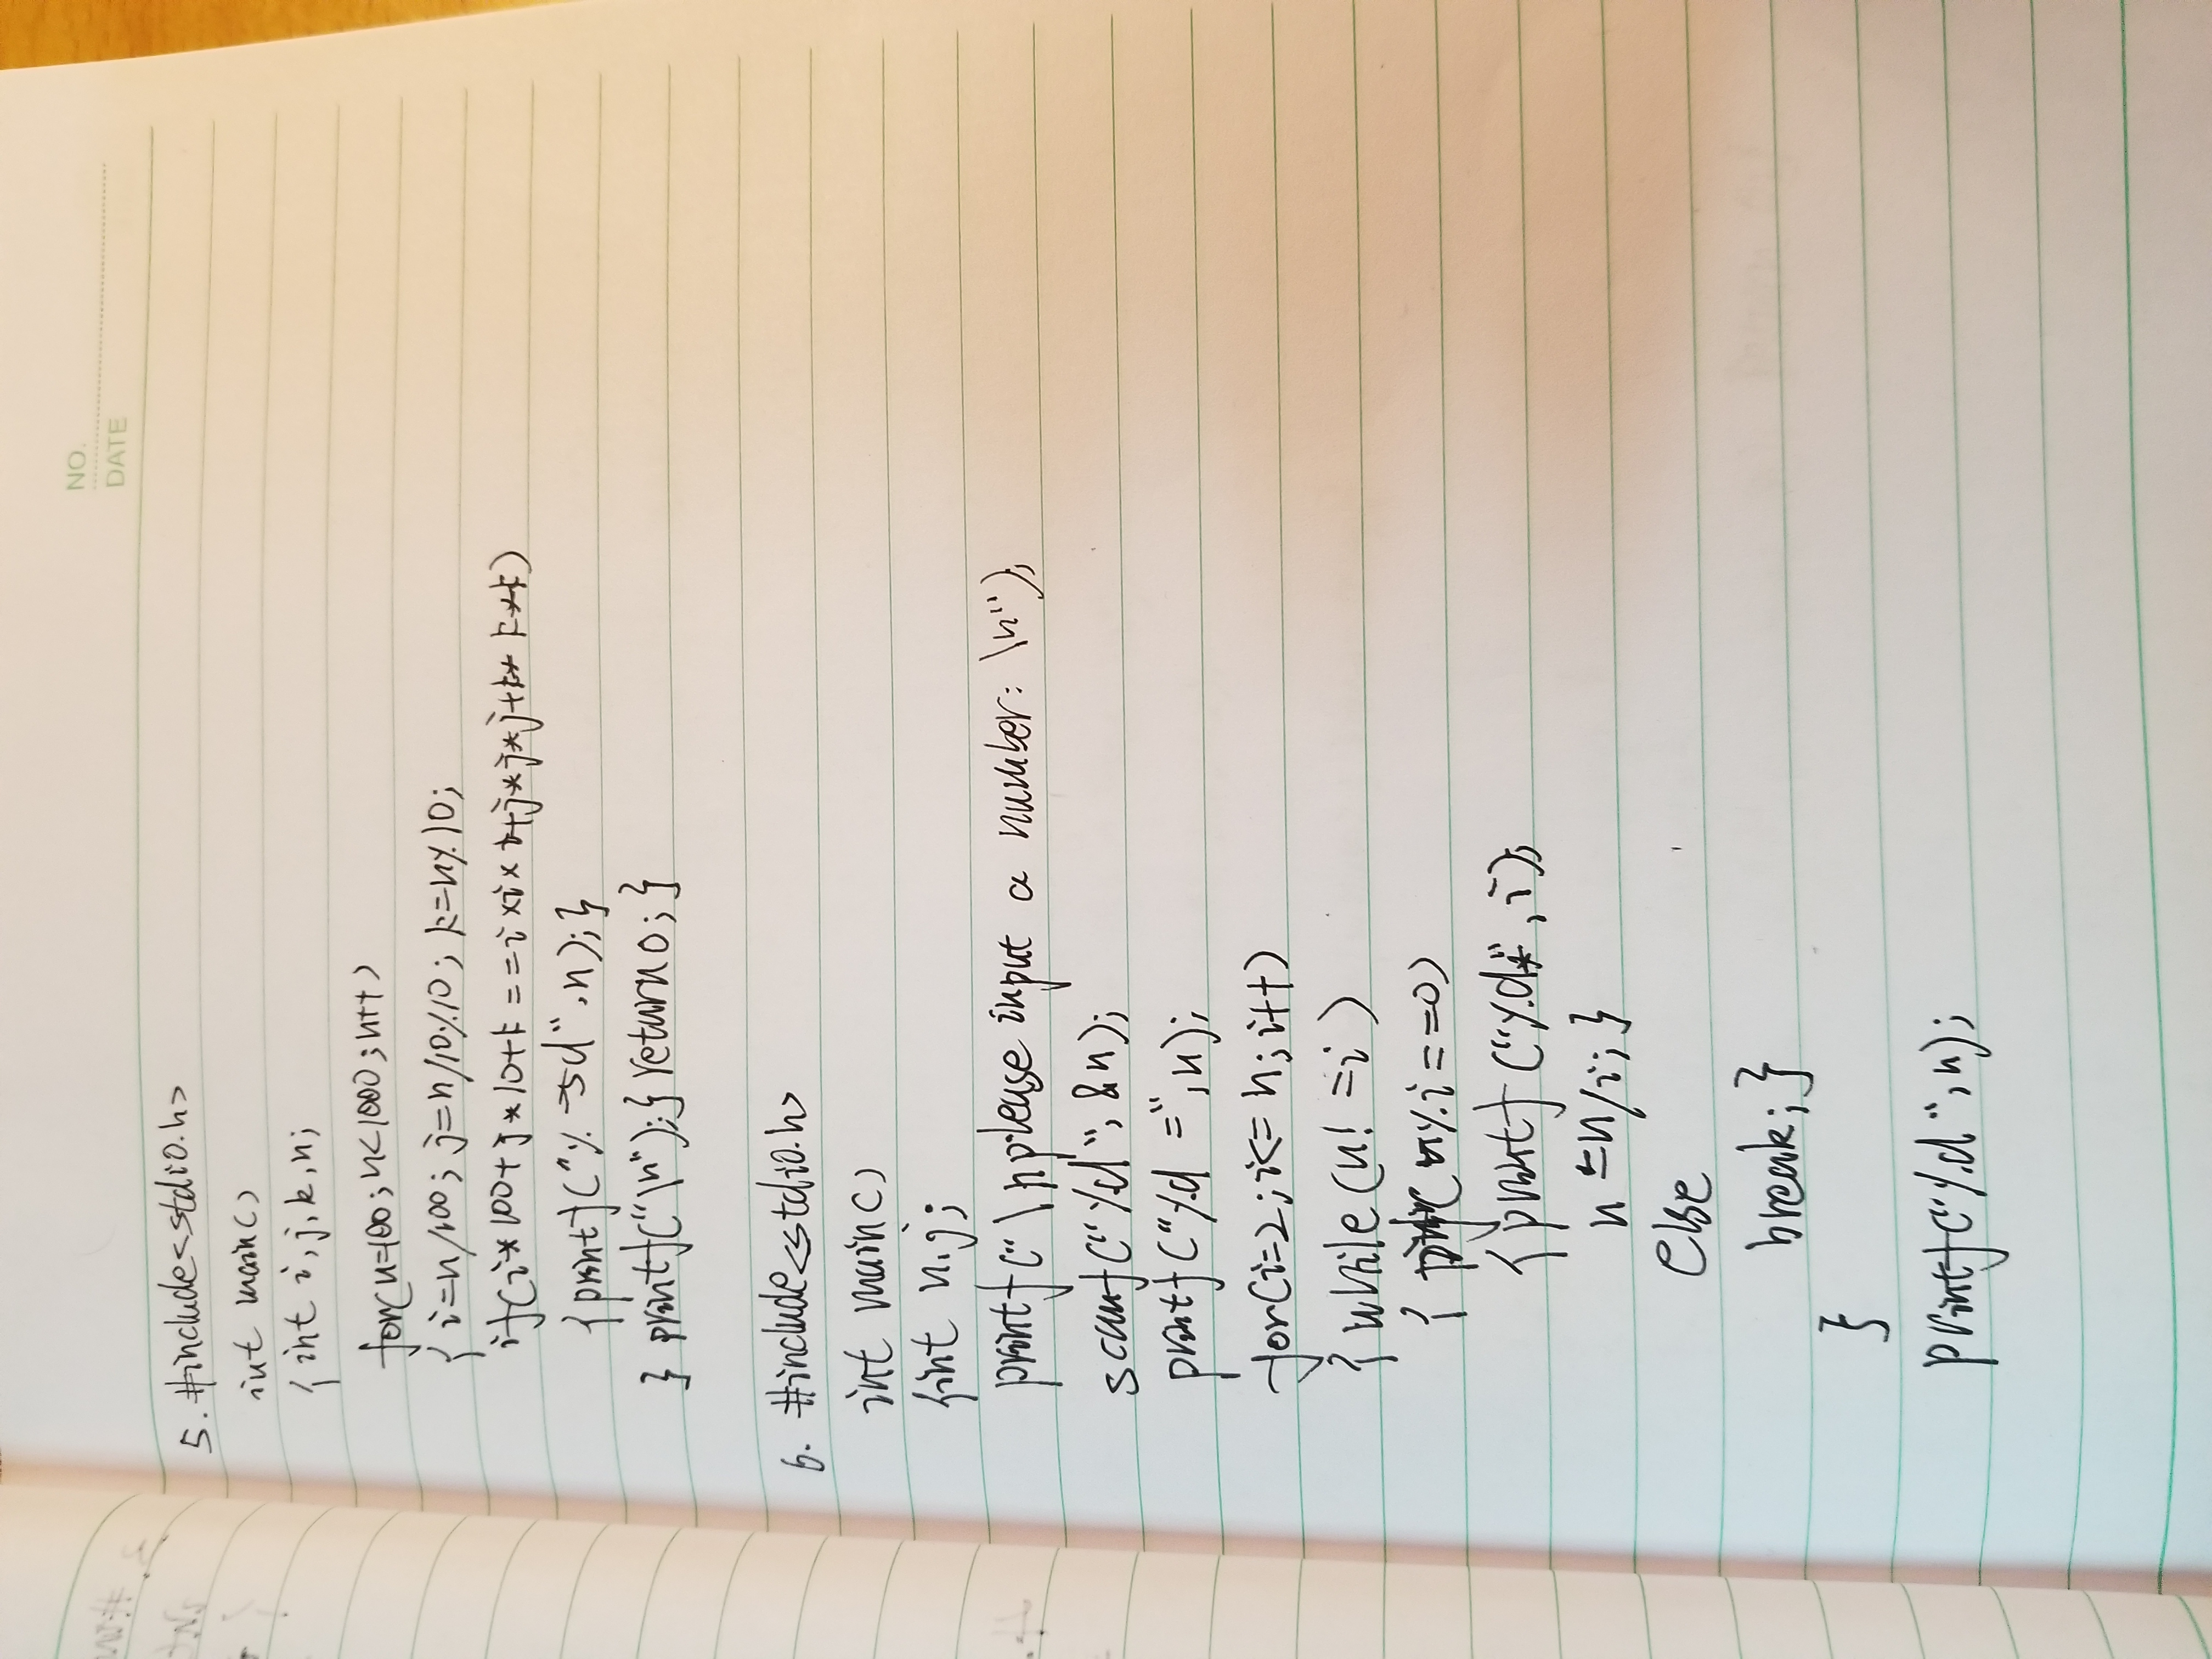 NO.
DATE
5. #include<stdio.h>
int main()
{int i,j,k,n;
for(n=100;n<1000;n++)
{i=n/100;j=n/10%10;k=n%10;
if(i*100+j*10+k==i*i*i+j*j*j+k*k*k)
{printf("%-5d",n);}
} printf("\n");} return 0;}
6. #include<stdio.h>
int main()
{int n,j;
printf("\nplease input a number:\n");
scanf("%d",&n);
printf("%d =",n);
for(i=2;i<=n;i++)
{while(n!=i)
{if(n%i==0)
{printf("%d*",i);
n=n/i;}
else
break;}
}
printf("%d",n);